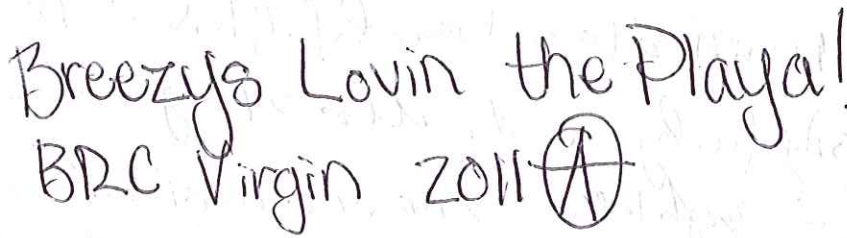 Breezys Lovin the Playa!
BRC Virgin 2011 Ⓐ